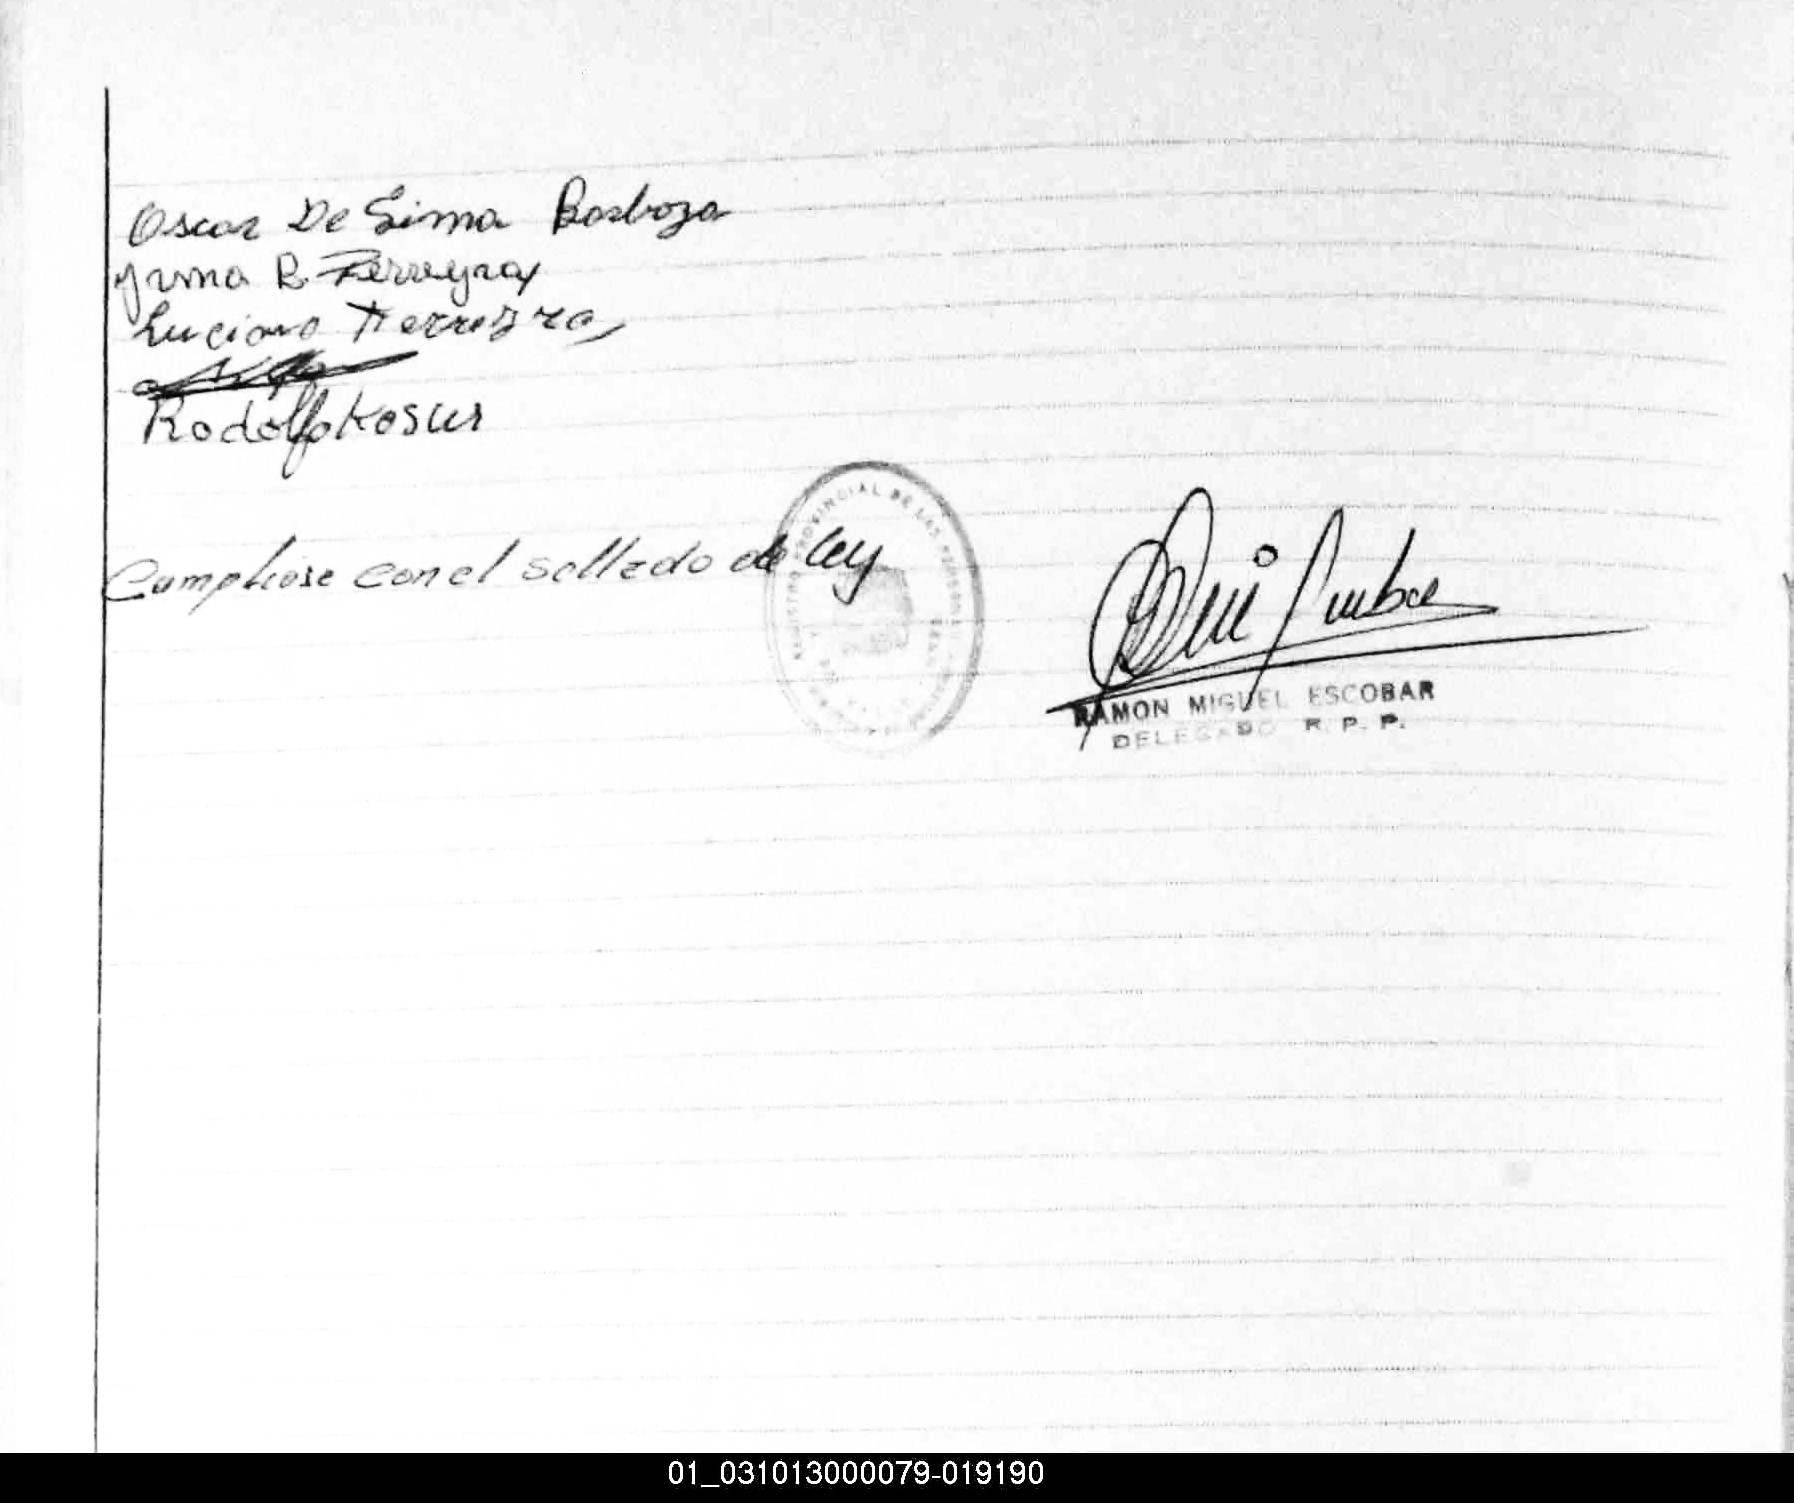 Oscar De Lima Barboza
Yrma R. Ferreyra
Luciano Ferreyra
Rodolfo Kosur
Cumpliose con el sellado de ley
REGISTRO PROVINCIAL DE LAS PERSONAS
RAMON MIGUEL ESCOBAR
DELEGADO R. P. P.
01_031013000079-019190